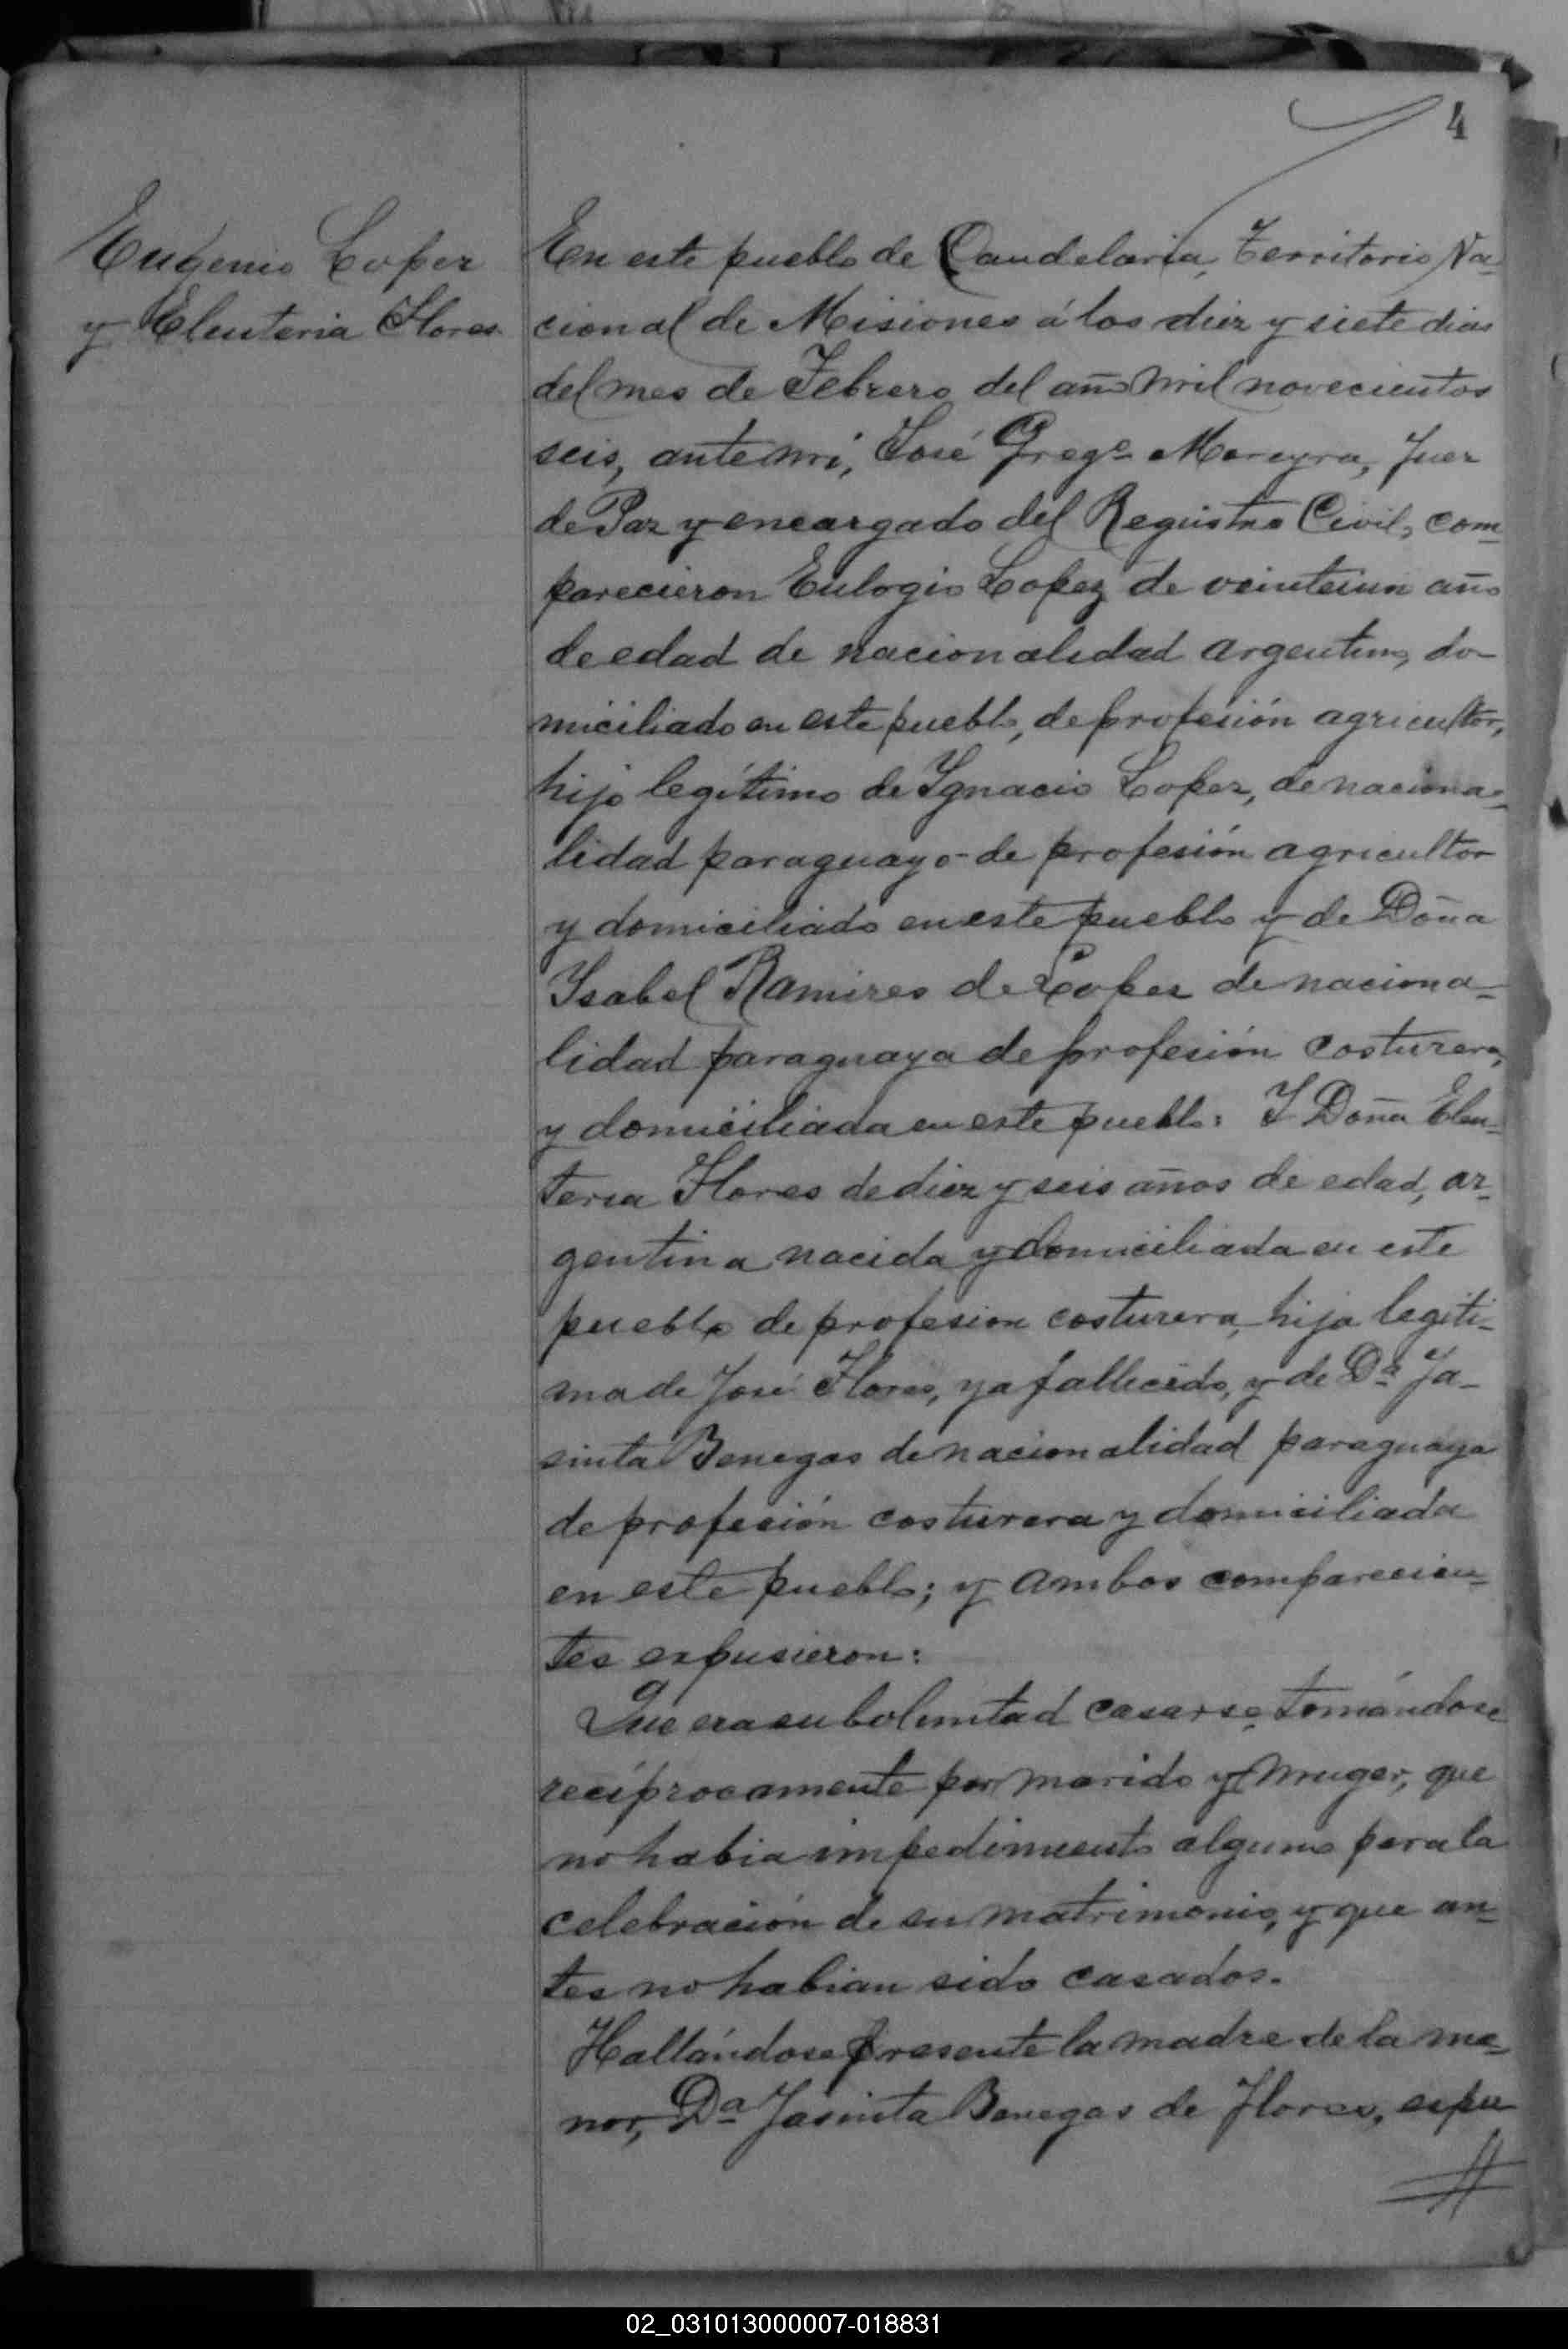 4
Eugenio Lopez
y Eleuteria Flores
En este pueblo de Candelaria, Territorio Na-
cional de Misiones á los diez y siete dias
del mes de Febrero del año mil novecientos
seis, ante mi, José Grego Moreyra, Juez
de Paz y encargado del Registro Civil, com-
parecieron Eulogio Lopez de veinteiun año
de edad de nacionalidad argentino, do-
miciliado en este pueblo, de profesión agricultor,
hijo legítimo de Ygnacio Lopez, de naciona-
lidad paraguayo de profesión agricultor
y domiciliado en este pueblo y de Doña
Ysabel Ramires de Lopez de naciona-
lidad paraguaya de profesión costurera,
y domiciliada en este pueblo: Y Doña Eleu-
teria Flores de diez y seis años de edad, ar-
gentina nacida y domiciliada en este
pueblo de profesion costurera, hija legiti-
ma de José Flores, ya fallecido, y de Da Ja-
sinta Benegas de nacionalidad paraguaya
de profesión costurera y domiciliada
en este pueblo; y ambos comparecien-
tes expusieron:
Que era su boluntad casarse, tomándose
recíprocamente por marido y muger, que
no habia impedimento alguno para la
celebración de su matrimonio, y que an-
tes no habian sido casados.
Hallándose presente la madre de la me-
nor, Da Jasinta Benegas de Flores, espu
02_031013000007-018831